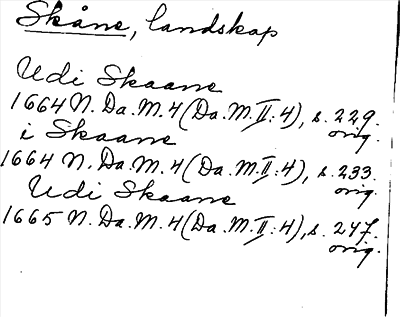 Skåne, landskap
Udi Skaane
1664 N. Da. M. 4 (Da. M. II: 4), s. 229.
orig.
i Skaane
1664 N. Da. M. 4 (Da. M. II: 4), s. 233.
orig.
Udi Skaane
1665 N. Da. M. 4 (Da. M. II: 4), s. 247.
orig.